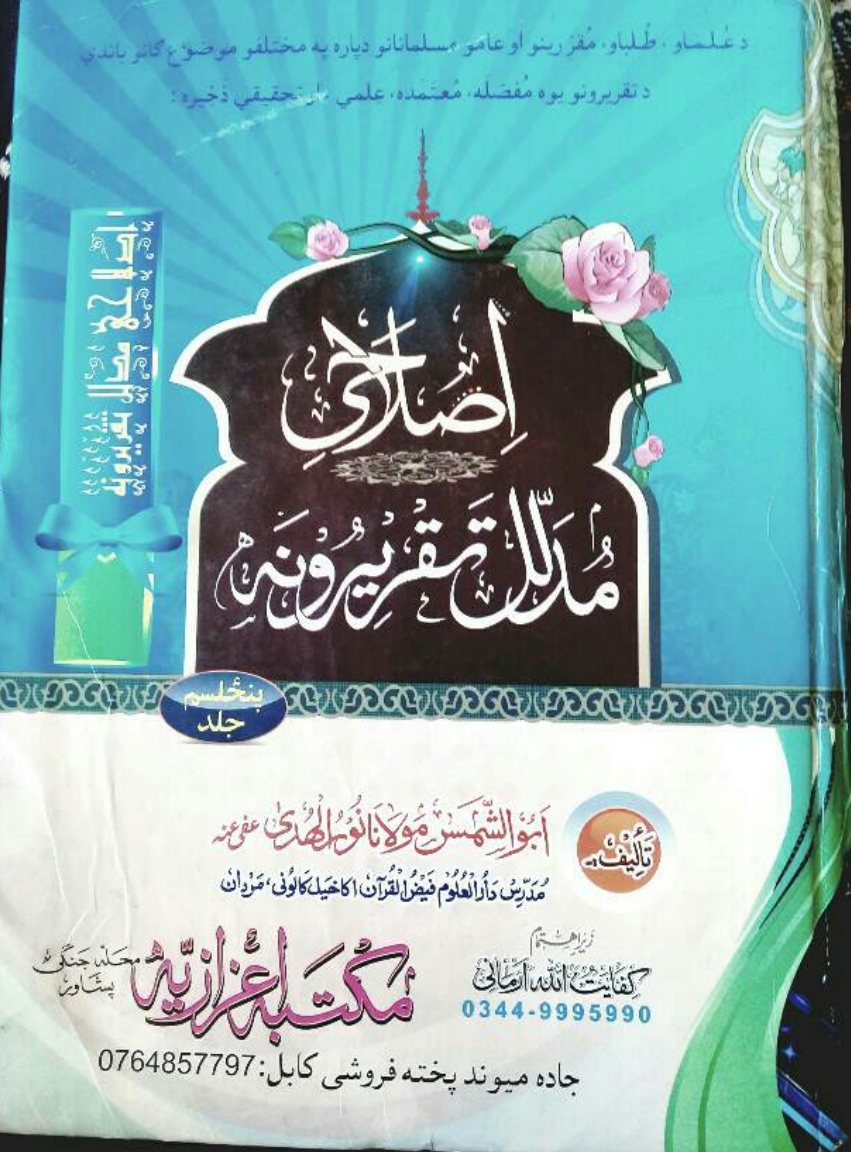 د عُلماو، طُلباو، مُقررینو او عامو مسلمانانو دپاره په مختلفو موضوع گانو باندي
د تقریرونو یوه مُفصّله، مُعتمده، علمي او تحقیقي ذَخیره:
اِصلاحی
مُدلّل تقریرونه
اصلاحی مدلل تقریرونه
پنځلسم
جلد
تألیف
ابوالشّمس مولانا نورالهدیٰ عفی عنه
مُدرّس دارُالعُلوم فیضُ القُرآن اکاخیل کالونی، مَردان
زیراهتمام
کفایت الله ارمانی
0344-9995990
مکتبه اعزازیّه
محله جنگی
پشاور
جاده میوند پخته فروشی کابل: 0764857797